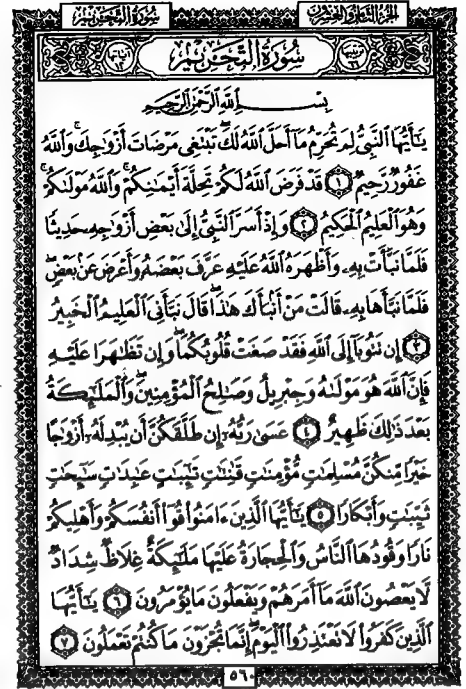 الجزء الثامن والعشرون سورة التحريم
ترتيبها ٦٦ سورة التحريم آياتها ١٢
بسم الله الرحمن الرحيم
يَـٰٓأَيُّهَا ٱلنَّبِىُّ لِمَ تُحَرِّمُ مَآ أَحَلَّ ٱللَّهُ لَكَ ۖ تَبْتَغِى مَرْضَاتَ أَزْوَٰجِكَ ۚ وَٱللَّهُ
غَفُورٌ رَّحِيمٌ ١ قَدْ فَرَضَ ٱللَّهُ لَكُمْ تَحِلَّةَ أَيْمَـٰنِكُمْ ۚ وَٱللَّهُ مَوْلَىٰكُمْ ۖ
وَهُوَ ٱلْعَلِيمُ ٱلْحَكِيمُ ٢ وَإِذْ أَسَرَّ ٱلنَّبِىُّ إِلَىٰ بَعْضِ أَزْوَٰجِهِۦ حَدِيثًا
فَلَمَّا نَبَّأَتْ بِهِۦ وَأَظْهَرَهُ ٱللَّهُ عَلَيْهِ عَرَّفَ بَعْضَهُۥ وَأَعْرَضَ عَنۢ بَعْضٍ ۖ
فَلَمَّا نَبَّأَهَا بِهِۦ قَالَتْ مَنْ أَنۢبَأَكَ هَـٰذَا ۖ قَالَ نَبَّأَنِىَ ٱلْعَلِيمُ ٱلْخَبِيرُ
٣ إِن تَتُوبَآ إِلَى ٱللَّهِ فَقَدْ صَغَتْ قُلُوبُكُمَا ۖ وَإِن تَظَـٰهَرَا عَلَيْهِ
فَإِنَّ ٱللَّهَ هُوَ مَوْلَىٰهُ وَجِبْرِيلُ وَصَـٰلِحُ ٱلْمُؤْمِنِينَ ۖ وَٱلْمَلَـٰٓئِكَةُ
بَعْدَ ذَٰلِكَ ظَهِيرٌ ٤ عَسَىٰ رَبُّهُۥٓ إِن طَلَّقَكُنَّ أَن يُبْدِلَهُۥٓ أَزْوَٰجًا
خَيْرًا مِّنكُنَّ مُسْلِمَـٰتٍ مُّؤْمِنَـٰتٍ قَـٰنِتَـٰتٍ تَـٰٓئِبَـٰتٍ عَـٰبِدَٰتٍ سَـٰٓئِحَـٰتٍ
ثَيِّبَـٰتٍ وَأَبْكَارًا ٥ يَـٰٓأَيُّهَا ٱلَّذِينَ ءَامَنُوا۟ قُوٓا۟ أَنفُسَكُمْ وَأَهْلِيكُمْ
نَارًا وَقُودُهَا ٱلنَّاسُ وَٱلْحِجَارَةُ عَلَيْهَا مَلَـٰٓئِكَةٌ غِلَاظٌ شِدَادٌ
لَّا يَعْصُونَ ٱللَّهَ مَآ أَمَرَهُمْ وَيَفْعَلُونَ مَا يُؤْمَرُونَ ٦ يَـٰٓأَيُّهَا
ٱلَّذِينَ كَفَرُوا۟ لَا تَعْتَذِرُوا۟ ٱلْيَوْمَ ۖ إِنَّمَا تُجْزَوْنَ مَا كُنتُمْ تَعْمَلُونَ ٧
٥٦٠